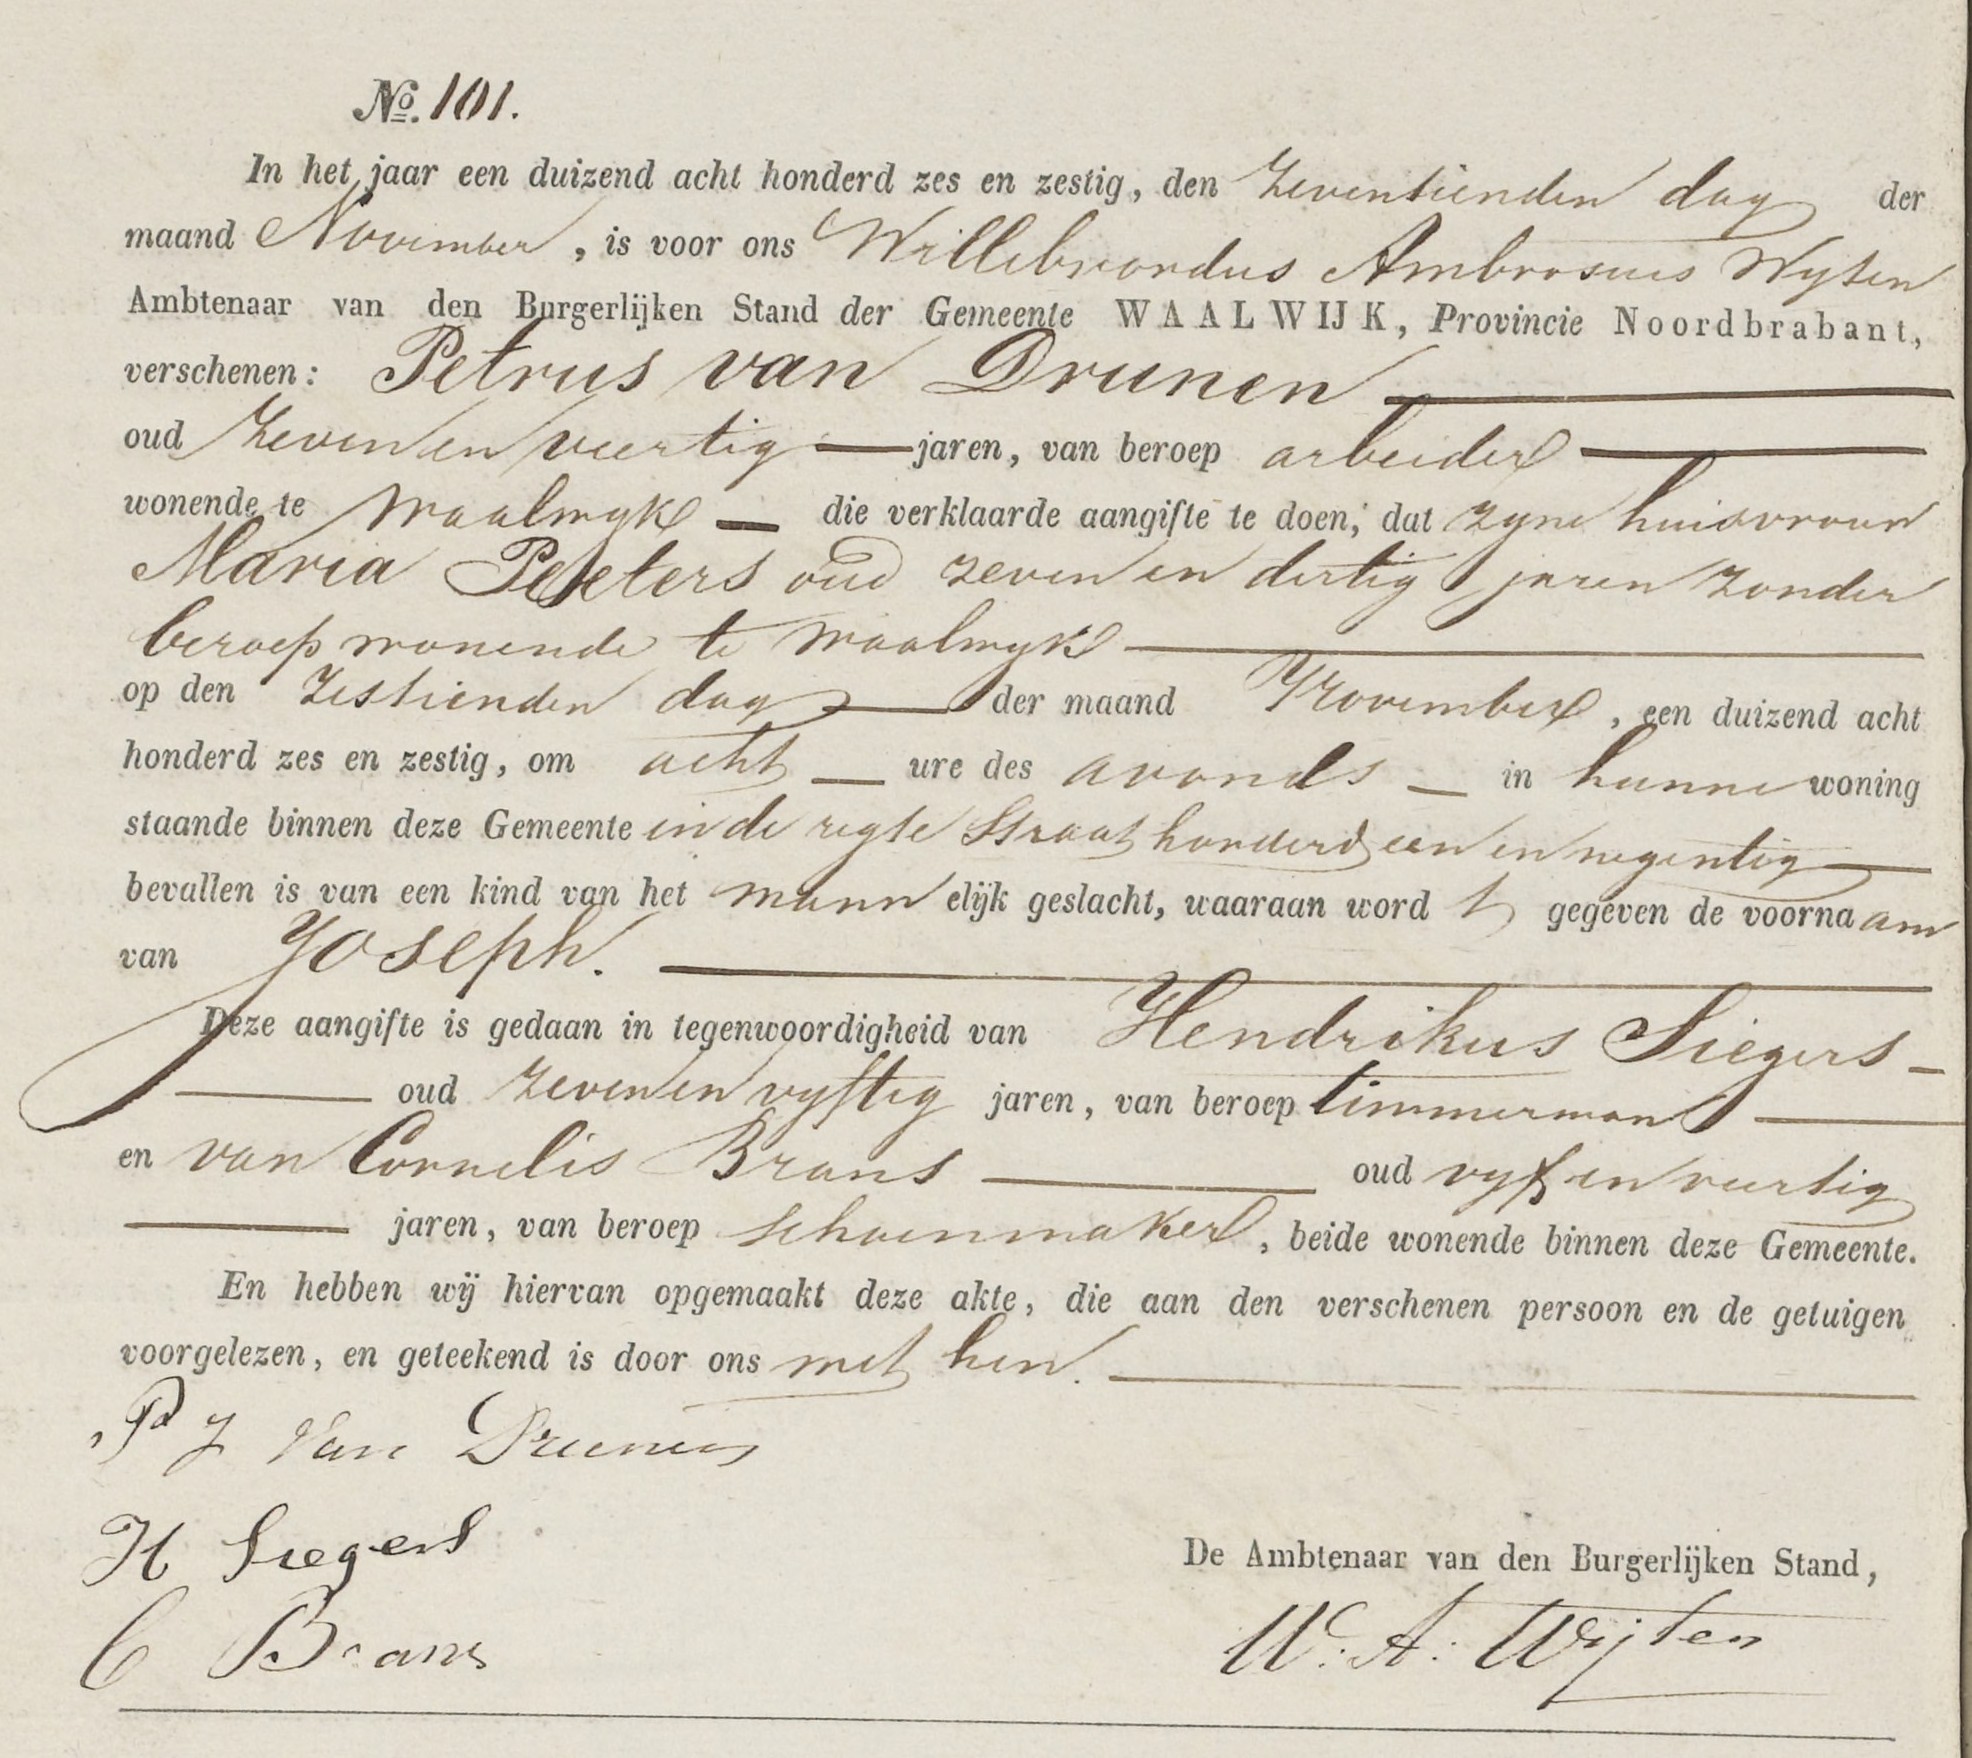 No. 101.
In het jaar een duizend acht honderd zes en zestig, den zeventienden dag der
maand November, is voor ons Willebrordus Ambrosius Wyten
Ambtenaar van den Burgerlijken Stand der Gemeente WAALWIJK, Provincie Noordbrabant,
verschenen: Petrus van Drunen
oud zeven en veertig jaren, van beroep arbeider
wonende te Waalwyk die verklaarde aangifte te doen, dat zyne huisvrouw
Maria Peeters oud zeven en dertig jaren zonder
beroep wonende te Waalwyk
op den zestienden dag der maand November, een duizend acht
honderd zes en zestig, om acht ure des avonds in hunne woning
staande binnen deze Gemeente in de regte Straat honderd een en negentig
bevallen is van een kind van het mannelijk geslacht, waaraan wordt gegeven de voornaam
van Joseph.
Deze aangifte is gedaan in tegenwoordigheid van Hendrikus Siegers
oud zeven en vyftig jaren, van beroep timmerman
en van Cornelis Brans oud vyf en veertig
jaren, van beroep schoenmaker, beide wonende binnen deze Gemeente.
En hebben wij hiervan opgemaakt deze akte, die aan den verschenen persoon en de getuigen
voorgelezen, en geteekend is door ons met hen.
P J Van Drunen
H Siegers
De Ambtenaar van den Burgerlijken Stand,
C Brans
W. A. Wijten